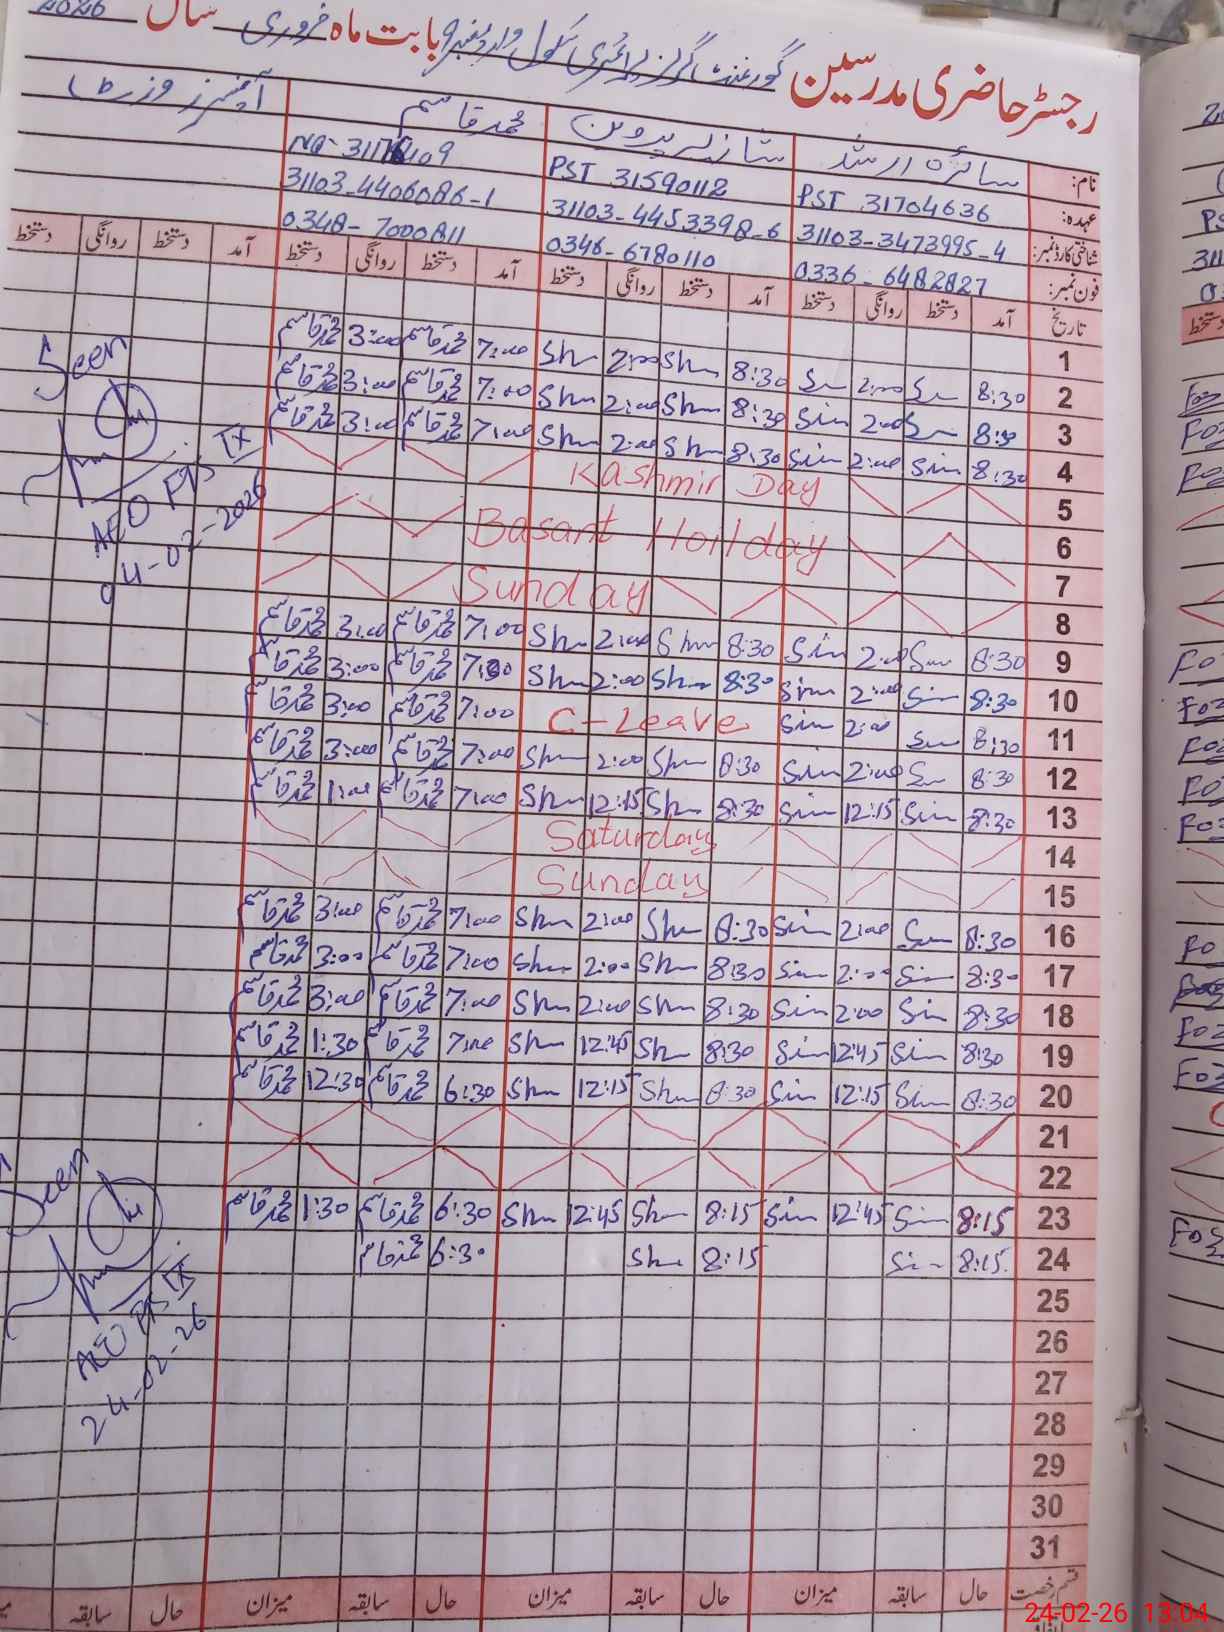 رجسٹر حاضری مدرسین گورنمنٹ گرلز پرائمری سکول وارڈ نمبر 9 بابت ماہ فروری سال 2026
نام: سائرہ ارشد شازیہ پروین محمد قاسم آفیسرز وزٹ
عہدہ: PST 31704636 PST 31590112 NQ-3117 109
شناختی کارڈ نمبر: 31103-3473995-4 31103-4453398-6 31103-4406086-1
فون نمبر: 0336-6482827 0346-6780110 0348-7000811
تاریخ آمد دستخط روانگی دستخط آمد دستخط روانگی دستخط آمد دستخط روانگی دستخط آمد دستخط روانگی دستخط
1
2 8:30 Sm 2:00 Sm 8:30 Shm 2:00 Shm 7:00 محمد قاسم 3:00 محمد قاسم
3 8:30 Sm 2:00 Sim 8:30 Shm 2:00 Shm 7:00 محمد قاسم 3:00 محمد قاسم
4 8:30 Sim 2:00 Sim 8:30 Shm 2:00 Shm 7:00 محمد قاسم 3:00 محمد قاسم
5 Kashmir Day
6 Basant Hoilday
7
8 Sunday
9 8:30 Sm 2:00 Sim 8:30 Shm 2:00 Shm 7:00 محمد قاسم 3:00 محمد قاسم
10 8:30 Sim 2:00 Sim 8:30 Shm 2:00 Shm 7:00 محمد قاسم 3:00 محمد قاسم
11 8:30 Sm 2:00 Sim C-Leave 7:00 محمد قاسم 3:00 محمد قاسم
12 8:30 Sm 2:00 Sim 8:30 Shm 2:00 Shm 7:00 محمد قاسم 3:00 محمد قاسم
13 8:30 Sim 12:15 Sim 8:30 Shm 12:15 Shm 7:00 محمد قاسم 1:00 محمد قاسم
14 Saturday
15 Sunday
16 8:30 Sm 2:00 Sim 8:30 Shm 2:00 Shm 7:00 محمد قاسم 3:00 محمد قاسم
17 8:30 Sim 2:00 Sim 8:30 Shm 2:00 Shm 7:00 محمد قاسم 3:00 محمد قاسم
18 8:30 Sim 2:00 Sim 8:30 Shm 2:00 Shm 7:00 محمد قاسم 3:00 محمد قاسم
19 8:30 Sim 12:45 Sim 8:30 Shm 12:45 Shm 7:00 محمد قاسم 1:30 محمد قاسم
20 8:30 Sim 12:15 Sim 8:30 Shm 12:15 Shm 6:30 محمد قاسم 12:30 محمد قاسم
21
22
23 8:15 Sim 12:45 Sim 8:15 Shm 12:45 Shm 6:30 محمد قاسم 1:30 محمد قاسم
24 8:15 Sim 8:15 Shm 6:30 محمد قاسم
25
26
27
28
29
30
31
قسم رخصت حال سابقہ میزان حال سابقہ میزان حال سابقہ میزان حال سابقہ
Seen
AEO PTS IX
04-02-2026
Seen
AEO PTS IX
24-02-26
24-02-26 13:04